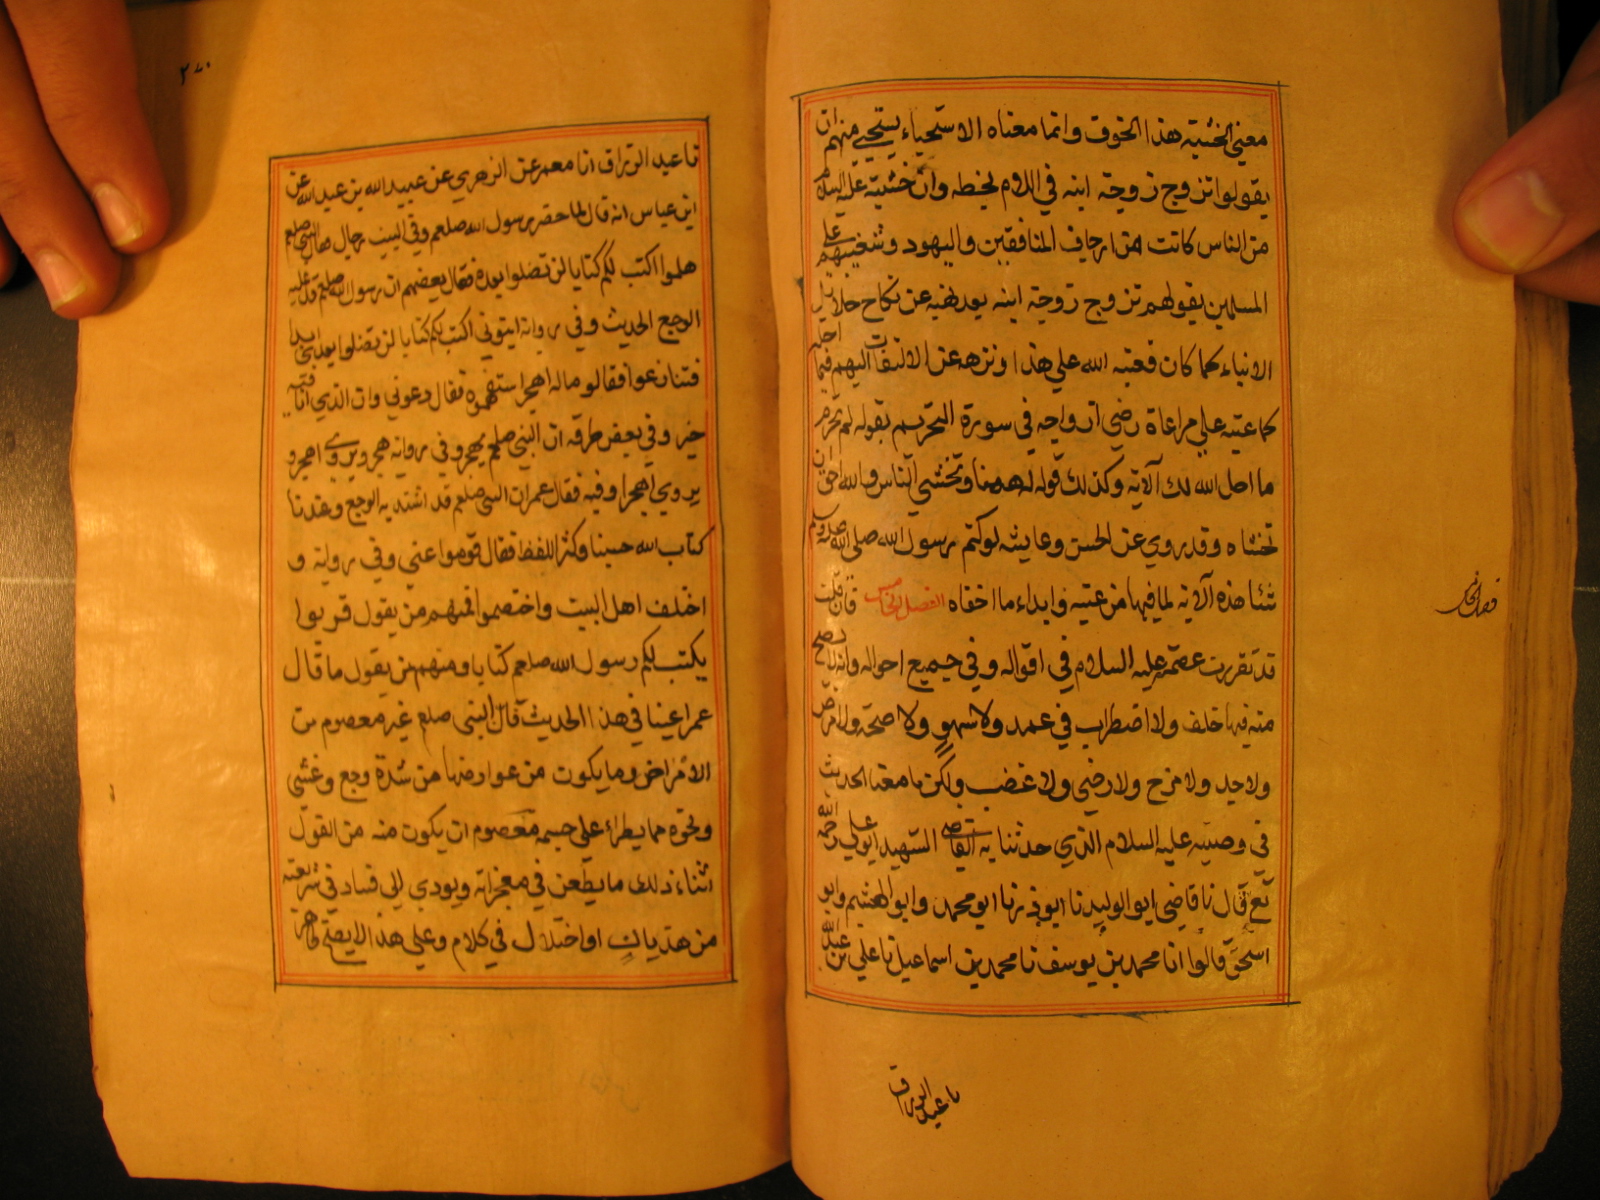 معني الخشية هذا الخوف وانما معناه الاستحياء يستحيي منهم ان
يقولوا تزوج زوجة ابنه في اللام لخطه وان خشيته عليه السلام
من الناس كانت من ارجاف المنافقين واليهود وتشغيبهم علي
المسلمين بقولهم تزوج زوجة ابنه بعد نهيه عن نكاح حلايل
الانباء كما كان فعتبه الله علي هذا ونزهه عن الالتفات اليهم فيما احله
كما عتبه علي مراعاة رضي ازواجه في سورة التحريم بقوله لم تحرم
ما احل الله لك الآية وكذلك قوله له ههنا وتخشي الناس والله احق ان
تخشاه وقد روي عن الحسن وعايشه لو كتم رسول الله صلي الله عليه وسلم
شئا هذه الآية لما فيها من عتبه وابداء ما اخفاه الفصل الخامس فان قلت
قد تقررت عصمته عليه السلام في اقواله وفي جميع احواله وانه لا يصح
منه فيها خلف ولا اضطراب في عمد ولا سهو ولا صحة ولا مرض
ولا جد ولا مزح ولا رضي ولا غضب ولكن ما معنا الحديث
في وصيته عليه السلام الذي حدثنا به القاضي الشهيد ابو علي رحمه الله
تع قال نا قاضي ابو الوليد نا ابو ذر نا ابو محمد وابو الهشيم وابو
اسحق قالوا انا محمد بن يوسف نا محمد بن اسماعيل نا علي بن عبد الله
فصل الخامس
نا عبد الرزاق
نا عبد الرزاق انا معمر عن الزهري عن عبيد الله بن عبد الله عن
ابن عباس انه قال لما حضر رسول الله صلعم وفي البيت رجال فقال النبي صلعم
هلموا اكتب لكم كتابا لن تضلوا بعده فقال بعضهم ان رسول الله صلعم قد غلبه
الوجع الحديث وفي رواية ايتوني اكتب لكم كتابا لن تضلوا بعدي ابدا
فتنازعوا فقالو ماله اهجر استفهموه فقال دعوني وان الذي انا فيه
خير وفي بعض طرقه ان النبي صلعم يهجر وفي رواية هجر ويروي اهجر و
يروي اهجرا وفيه فقال عمر ان النبي صلعم قد اشتد به الوجع وعندنا
كتاب الله حسبنا وكثر اللفظ فقال قوموا عني وفي رواية و
اختلف اهل البيت واختصموا فمنهم من يقول قربوا
يكتب لكم رسول الله صلعم كتابا ومنهم من يقول ما قال
عمر اعينا في هذا الحديث قال النبي صلع غير معصوم من
الامراض وما يكون من عوارضها من شدة وجع وغشي
ونحوه مما يطراء علي جسمه معصوم ان يكون منه من القول
اثناء ذلك ما يطعن في معجزاته ويودي الي فساد في شريعته
من هذيان او اختلال في كلام وعلي هذا لا يصح